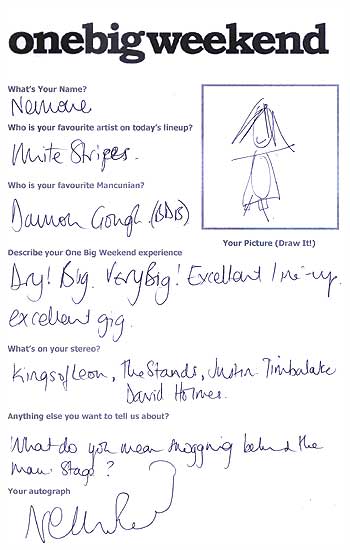 onebigweekend
What's Your Name?
Nemone
Who is your favourite artist on today's lineup?
White Stripes.
Who is your favourite Mancunian?
Damon Gough. (BDB)
Your Picture (Draw It!)
Describe your One Big Weekend experience
Dry! Big. Very Big! Excellent line-up.
excellent gig.
What's on your stereo?
Kings of Leon, The Stands, Justin Timbalake
David Holmes.
Anything else you want to tell us about?
What do you mean snogging behind the
main stage?
Your autograph
Nemone